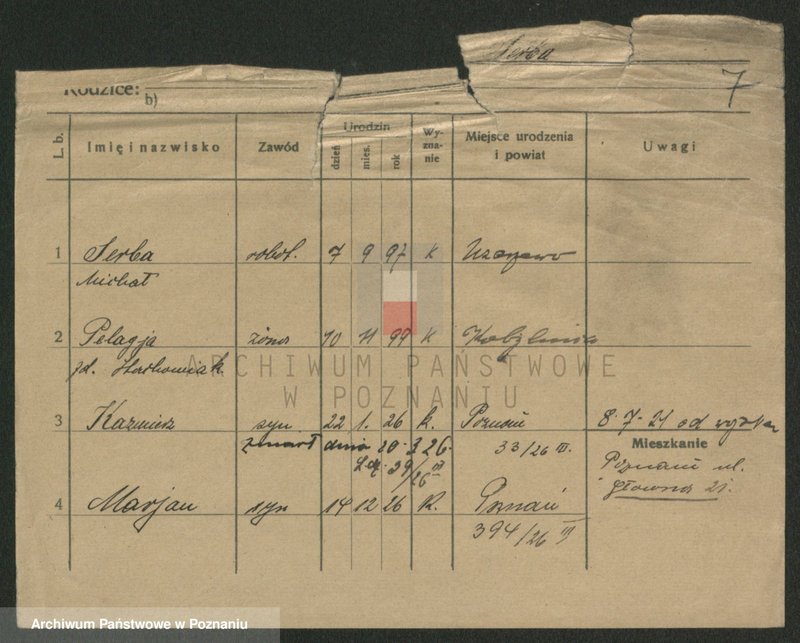 Serba
7
Rodzice:
b)
L. b.
Imię i nazwisko
Zawód
Urodzin
dzień
mies.
rok
Wy-
zna-
nie
Miejsce urodzenia
i powiat
Uwagi
1 Serba robot. 7 9 97 K
Michał
2 Pelagja żona 10 11 99 K
zd.
ARCHIWUM PAŃSTWOWE
W POZNANIU
3 Kazmierz syn 22 1. 26 k. Poznań 8.7.21 od
zmarł dnia 20.3 26. 33/26 III. Mieszkanie
L. dz. 39/26 III Poznań ul.
Główna 21.
4 Marjan syn 14 12 26 k. Poznań
394/26 III
Archiwum Państwowe w Poznaniu